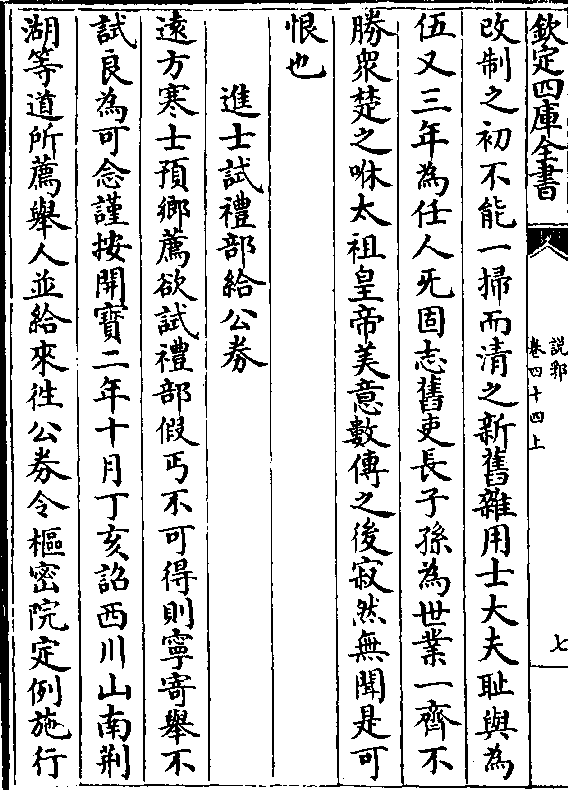 欽定四庫全書
說郛
卷四十四上
七
改制之初不能一掃而清之新舊雜用士大夫耻與為
伍又三年為任人旡固志舊吏長子孫為世業一齊不
勝衆楚之咻太祖皇帝美意數傳之後寂然無聞是可
恨也
進士試禮部給公券
遠方寒士預鄉薦欲試禮部假丐不可得則寧寄舉不
試良為可念謹按開寶二年十月丁亥詔西川山南荆
湖等道所薦舉人並給來徃公券令樞密院定例施行